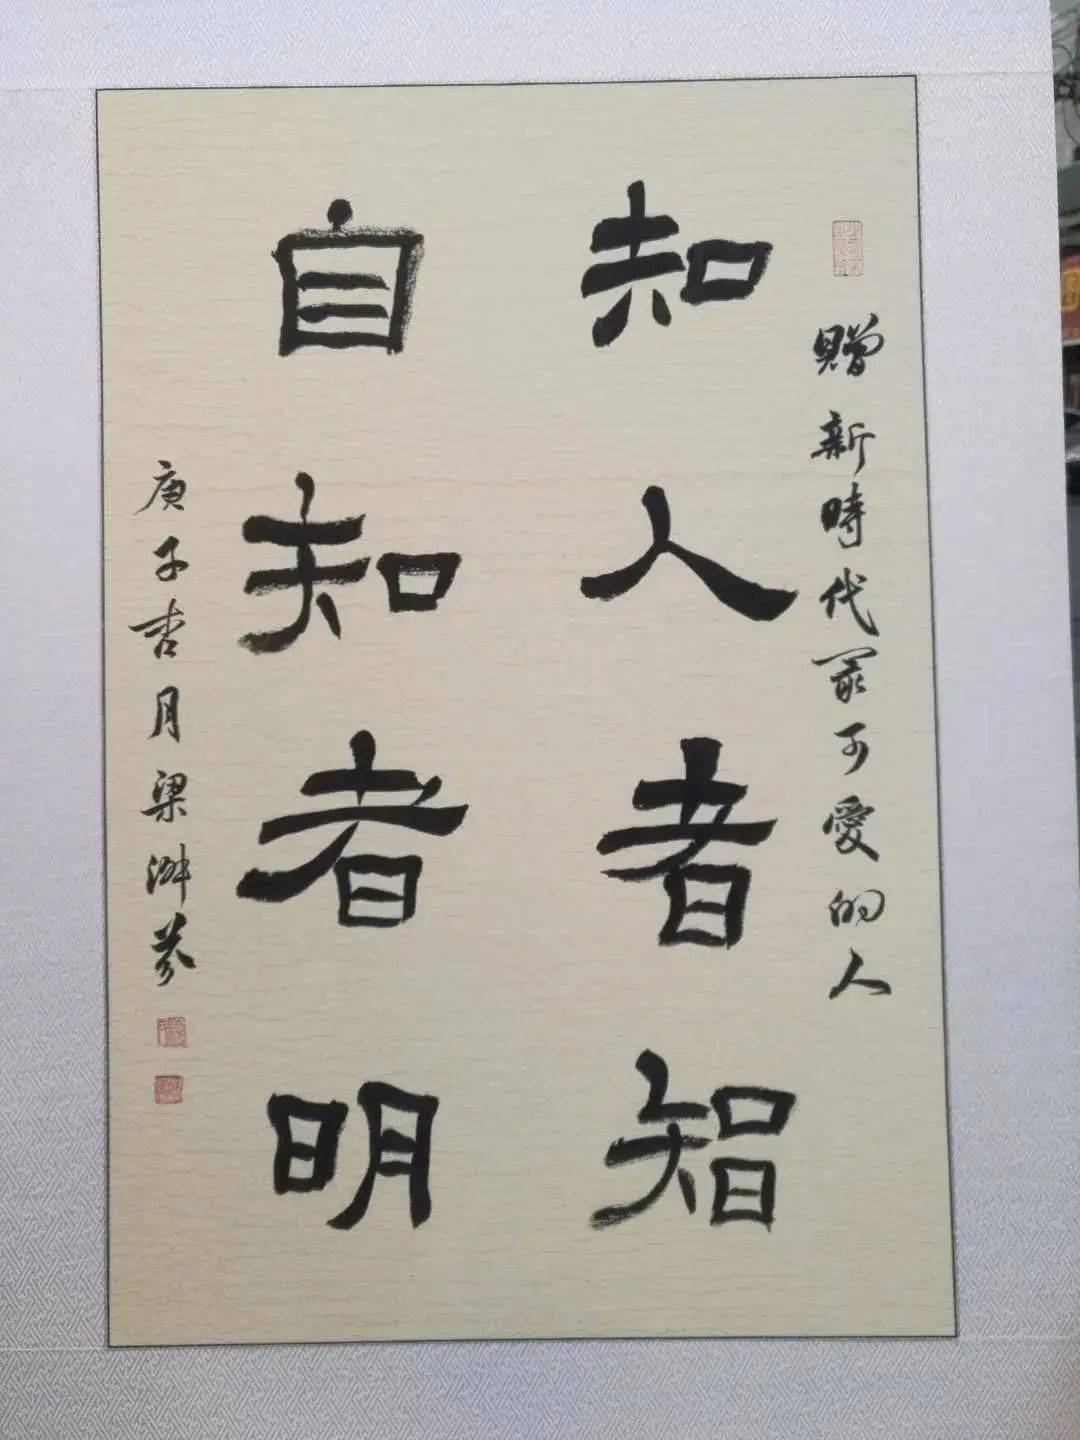 贈新時代冣可愛的人
知人者智
自知者明
庚子吉月梁淋芬